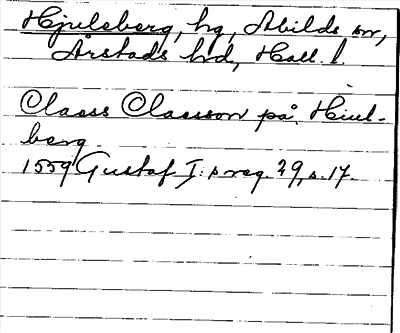 Hjulsberg, hg, Abilds sn,
Årstads hd, Hall. l.
Claess Claesson på Hiul-
berg.
1559 Gustaf I:s reg. 29, s. 17.